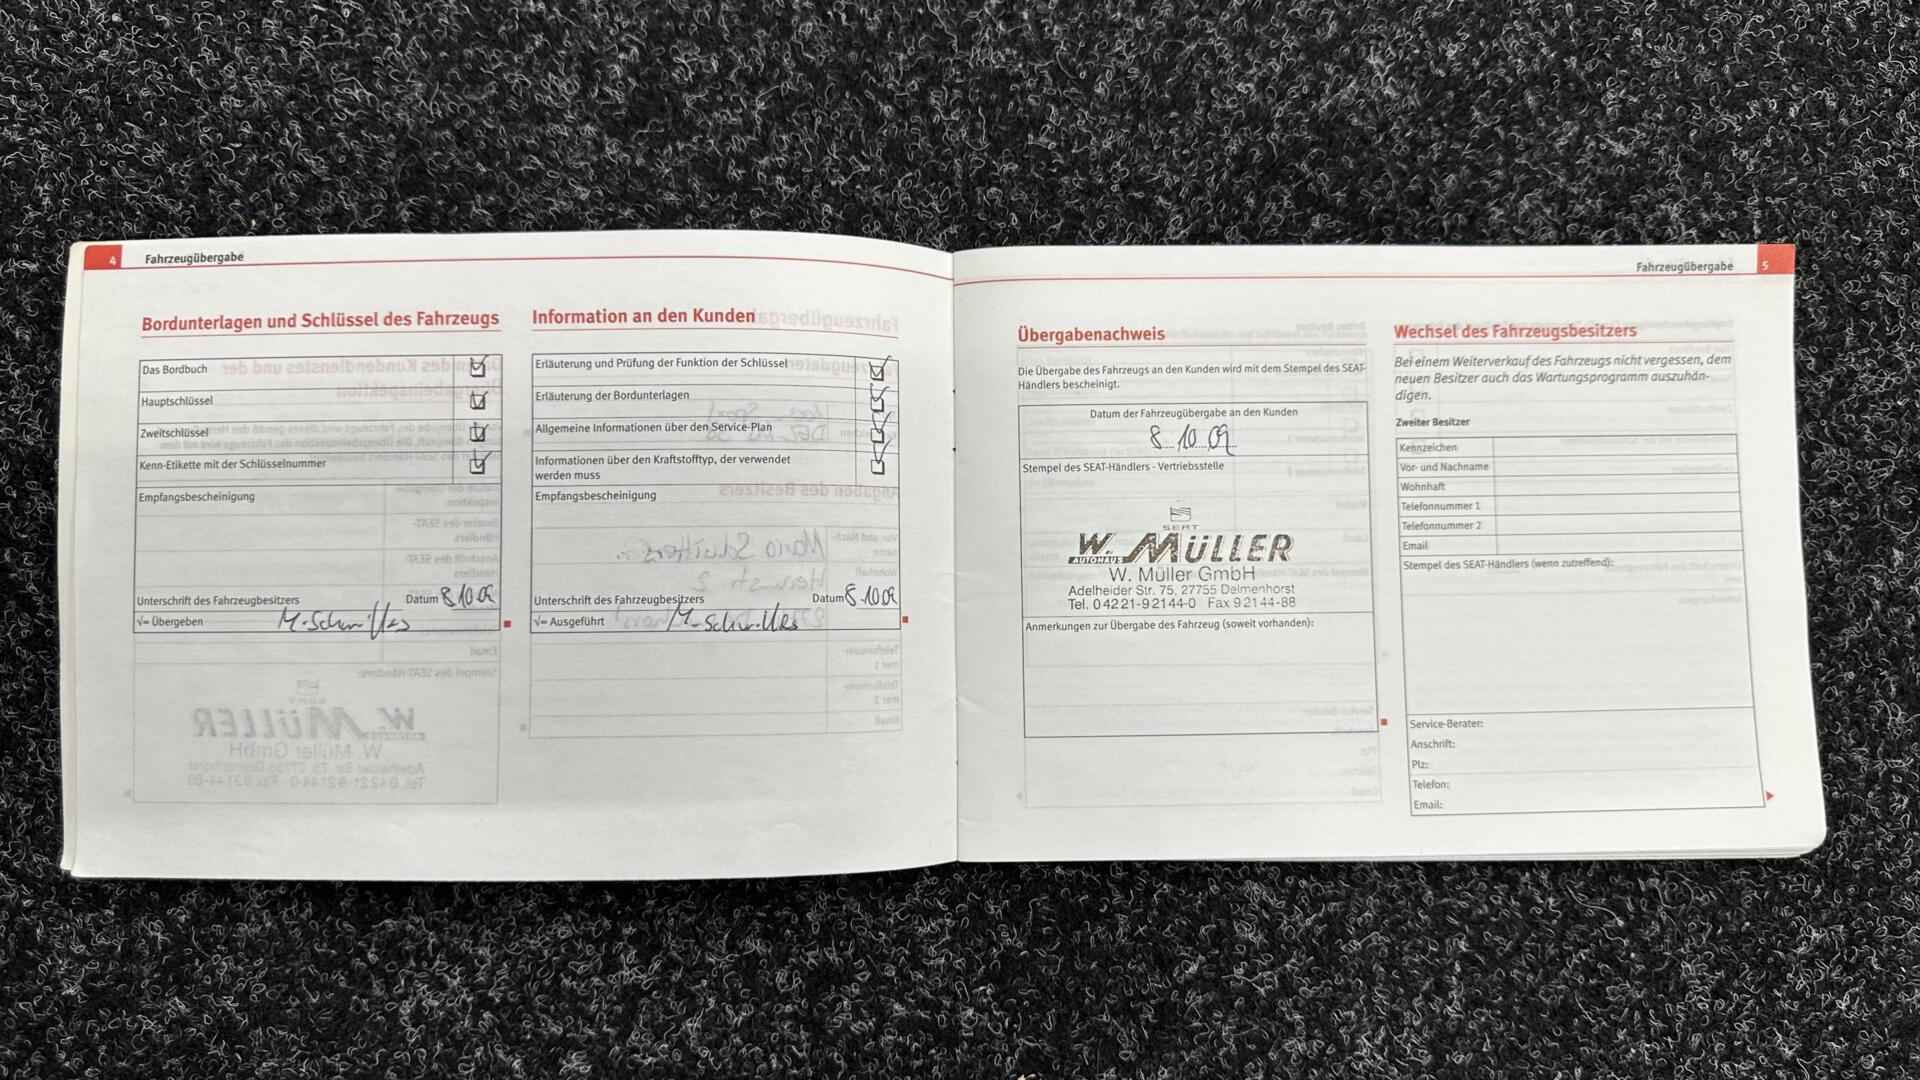 4 Fahrzeugübergabe
Bordunterlagen und Schlüssel des Fahrzeugs
Das Bordbuch
Hauptschlüssel
Zweitschlüssel
Kenn-Etikette mit der Schlüsselnummer
Empfangsbescheinigung
Unterschrift des Fahrzeugbesitzers
Datum 8.10.09
√= Übergeben
Information an den Kunden
Erläuterung und Prüfung der Funktion der Schlüssel
Erläuterung der Bordunterlagen
Allgemeine Informationen über den Service-Plan
Informationen über den Kraftstofftyp, der verwendet
werden muss
Empfangsbescheinigung
Unterschrift des Fahrzeugbesitzers
Datum 8.10.09
√= Ausgeführt
Fahrzeugübergabe 5
Übergabenachweis
Die Übergabe des Fahrzeugs an den Kunden wird mit dem Stempel des SEAT-
Händlers bescheinigt.
Datum der Fahrzeugübergabe an den Kunden
8.10.09
Stempel des SEAT-Händlers - Vertriebsstelle
SEAT
W. MÜLLER
AUTOHAUS
W. Müller GmbH
Adelheider Str. 75, 27755 Delmenhorst
Tel. 04221-92144-0 Fax 92144-88
Anmerkungen zur Übergabe des Fahrzeug (soweit vorhanden):
Wechsel des Fahrzeugsbesitzers
Bei einem Weiterverkauf des Fahrzeugs nicht vergessen, dem
neuen Besitzer auch das Wartungsprogramm auszuhän-
digen.
Zweiter Besitzer
Kennzeichen
Vor- und Nachname
Wohnhaft
Telefonnummer 1
Telefonnummer 2
Email
Stempel des SEAT-Händlers (wenn zutreffend):
Service-Berater:
Anschrift:
Plz:
Telefon:
Email: